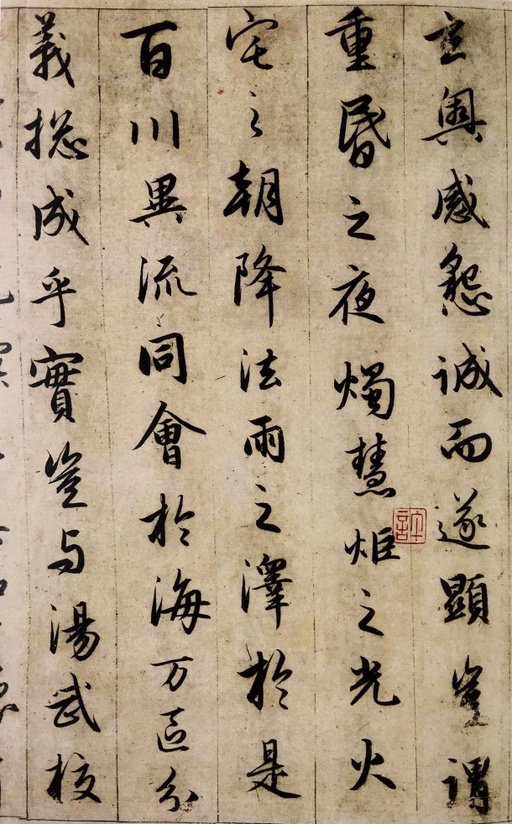 玄奧感懇誠而遂顯豈謂
重昬之夜燭慧炬之光火
宅之朝降法雨之澤於是
百川異流同會於海万區分
義揔成乎實豈与湯武校